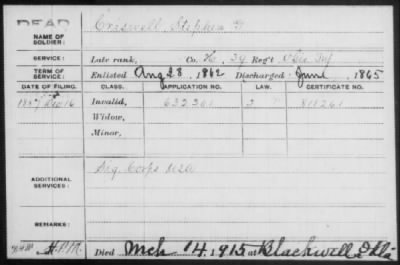 DEAD
NAME OF SOLDIER: Criswell, Stephen G
SERVICE: Late rank, Co. H, 39 Reg't Ohio Inf
TERM OF SERVICE: Enlisted Aug 28, 1862 Discharged June 1865
DATE OF FILING. CLASS. APPLICATION NO. LAW. CERTIFICATE NO.
1887 16 Invalid, 632301 811261
Widow,
Minor,
ADDITIONAL SERVICES: Sig. Corps USA
REMARKS:
Died Mch 14, 1915 at Blackwell Okla